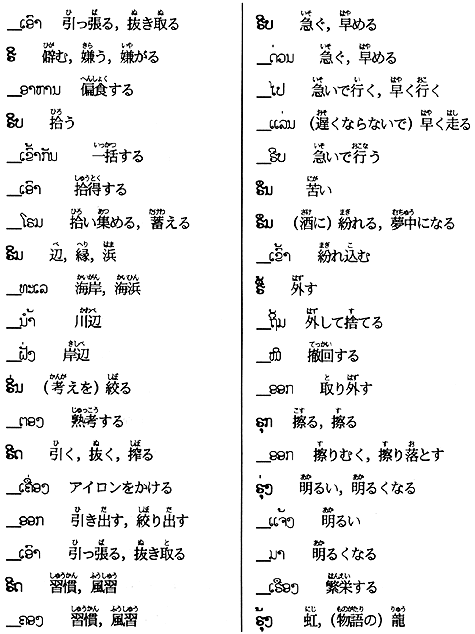 __ເອົາ 引っ張る, 抜き取る
ຮິ 僻む, 嫌う, 嫌がる
__ອາຫານ 偏食する
ຮິບ 拾う
__ເຂົ້າກັນ 一括する
__ເອົາ 拾得する
__ໂຮມ 拾い集める, 蓄える
ຮິມ 辺, 縁, 浜
__ທະເລ 海岸, 海浜
__ນ້ຳ 川辺
__ຝັ່ງ 岸辺
ຮິ່ນ (考えを) 絞る
__ຕອງ 熟考する
ຮີດ 引く, 抜く, 搾る
__ເຄື່ອງ アイロンをかける
__ອອກ 引き出す, 絞り出す
__ເອົາ 引っ張る, 抜き取る
ຮີດ 習慣, 風習
__ຄອງ 習慣, 風習
ຮີບ 急ぐ, 早める
__ດ່ວນ 急ぐ, 早める
__ໄປ 急いで行く, 早く行く
__ແລ່ນ (遅くならないで) 早く走る
__ຮີບ 急いで行う
ຮືນ 苦い
ຮຶມ (酒に) 紛れる, 夢中になる
__ເຂົ້າ 紛れ込む
ຮື້ 外す
__ຖິ້ມ 外して捨てる
__ໜີ 撤回する
__ອອກ 取り外す
ຮຸກ 擦る, 擦る
__ອອກ 擦りむく, 擦り落とす
ຮຸ່ງ 明るい, 明るくなる
__ແຈ້ງ 明るい
__ມາ 明るくなる
__ເຮືອງ 繁栄する
ຮຸ້ງ 虹, (物語の) 龍